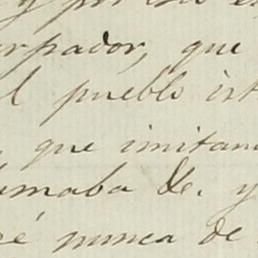 y por
rpador, que
l pueblo ist
que imitan
amaba &c. y
ré nunca de